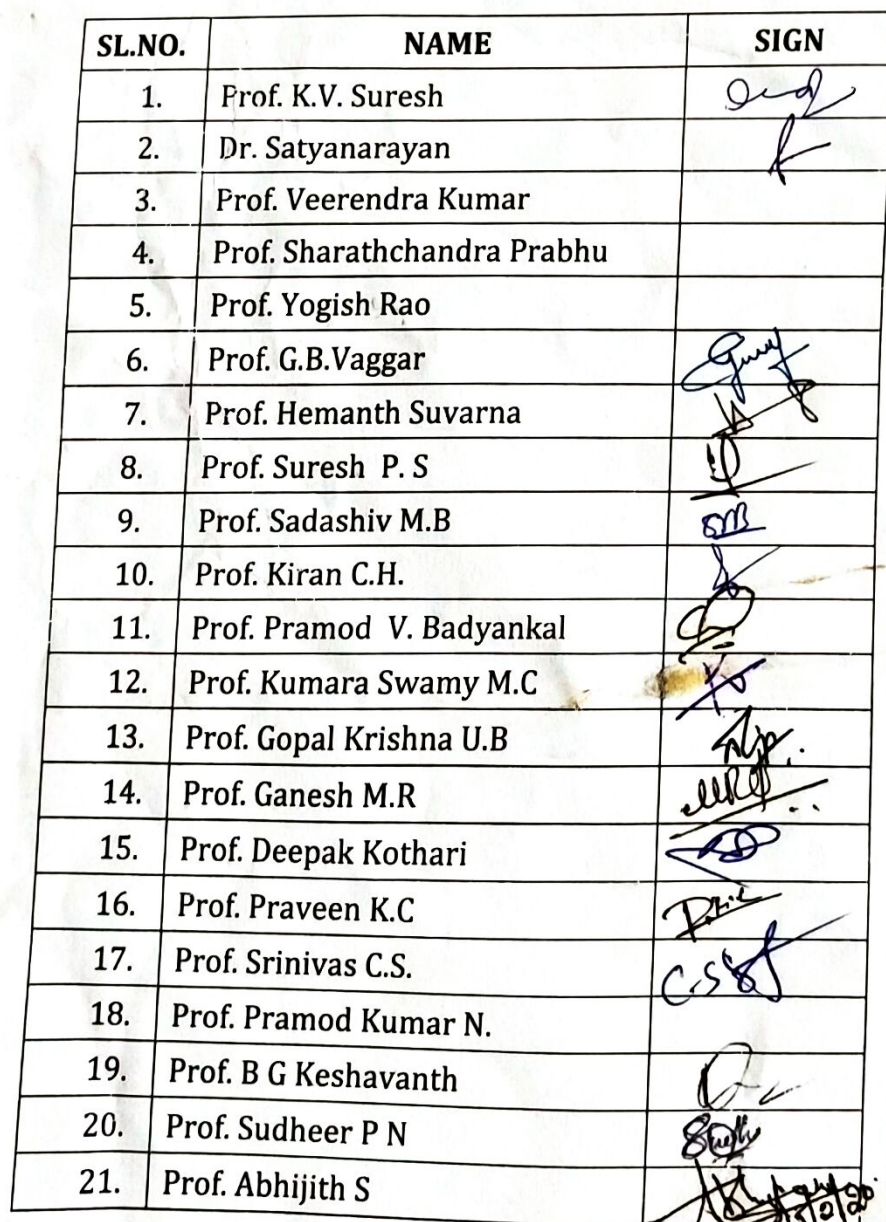 SL.NO. NAME SIGN
1. Prof. K.V. Suresh
2. Dr. Satyanarayan
3. Prof. Veerendra Kumar
4. Prof. Sharathchandra Prabhu
5. Prof. Yogish Rao
6. Prof. G.B.Vaggar
7. Prof. Hemanth Suvarna
8. Prof. Suresh P. S
9. Prof. Sadashiv M.B
10. Prof. Kiran C.H.
11. Prof. Pramod V. Badyankal
12. Prof. Kumara Swamy M.C
13. Prof. Gopal Krishna U.B
14. Prof. Ganesh M.R
15. Prof. Deepak Kothari
16. Prof. Praveen K.C
17. Prof. Srinivas C.S.
18. Prof. Pramod Kumar N.
19. Prof. B G Keshavanth
20. Prof. Sudheer P N
21. Prof. Abhijith S